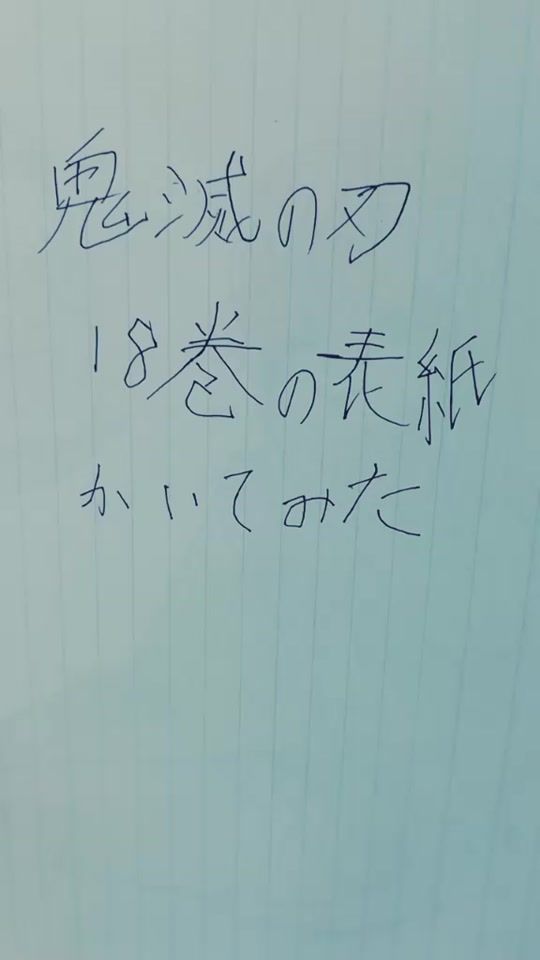 鬼滅の刃
18巻の表紙
かいてみた